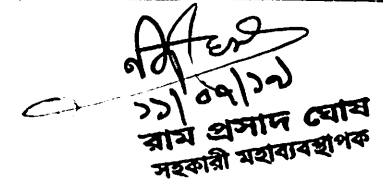 ১১/০৭/১৯
রাম প্রসাদ ঘোষ
সহকারী মহাব্যবস্থাপক